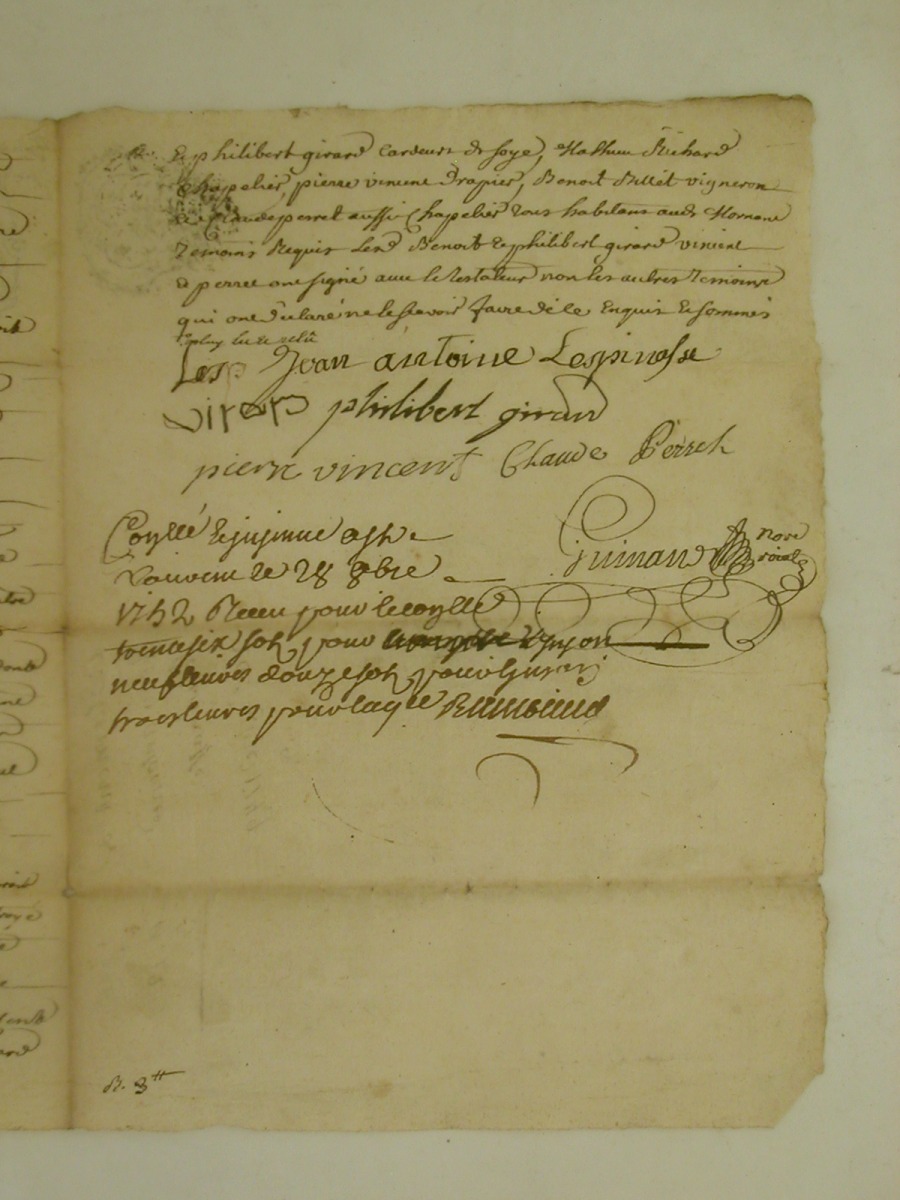 Et philibert girard Cardeurs de soye, Mathieu Richard
Chapelier, pierre vincent Drapier, Benoit Billet vigneron
et Claude perret aussi Chapelier Tous habitans aud. Mornant
Temoins Requis Lesd Benoit Et philibert girard vincent
Et perret ont signé avec le Testateur non les autres Temoins
qui ont declaré ne le scavoir faire de ce Enquis Et sommés
Lesp Jean antoine Lespinasse
philibert girard
pierre vincent Claude Perret
Guinand nore roial
Conllé Et
Le 28 8bre
1742 Receu pour le conlle
trentesix sols pour
neuf livres douze sols pour
trois livres pour
B. 3tt